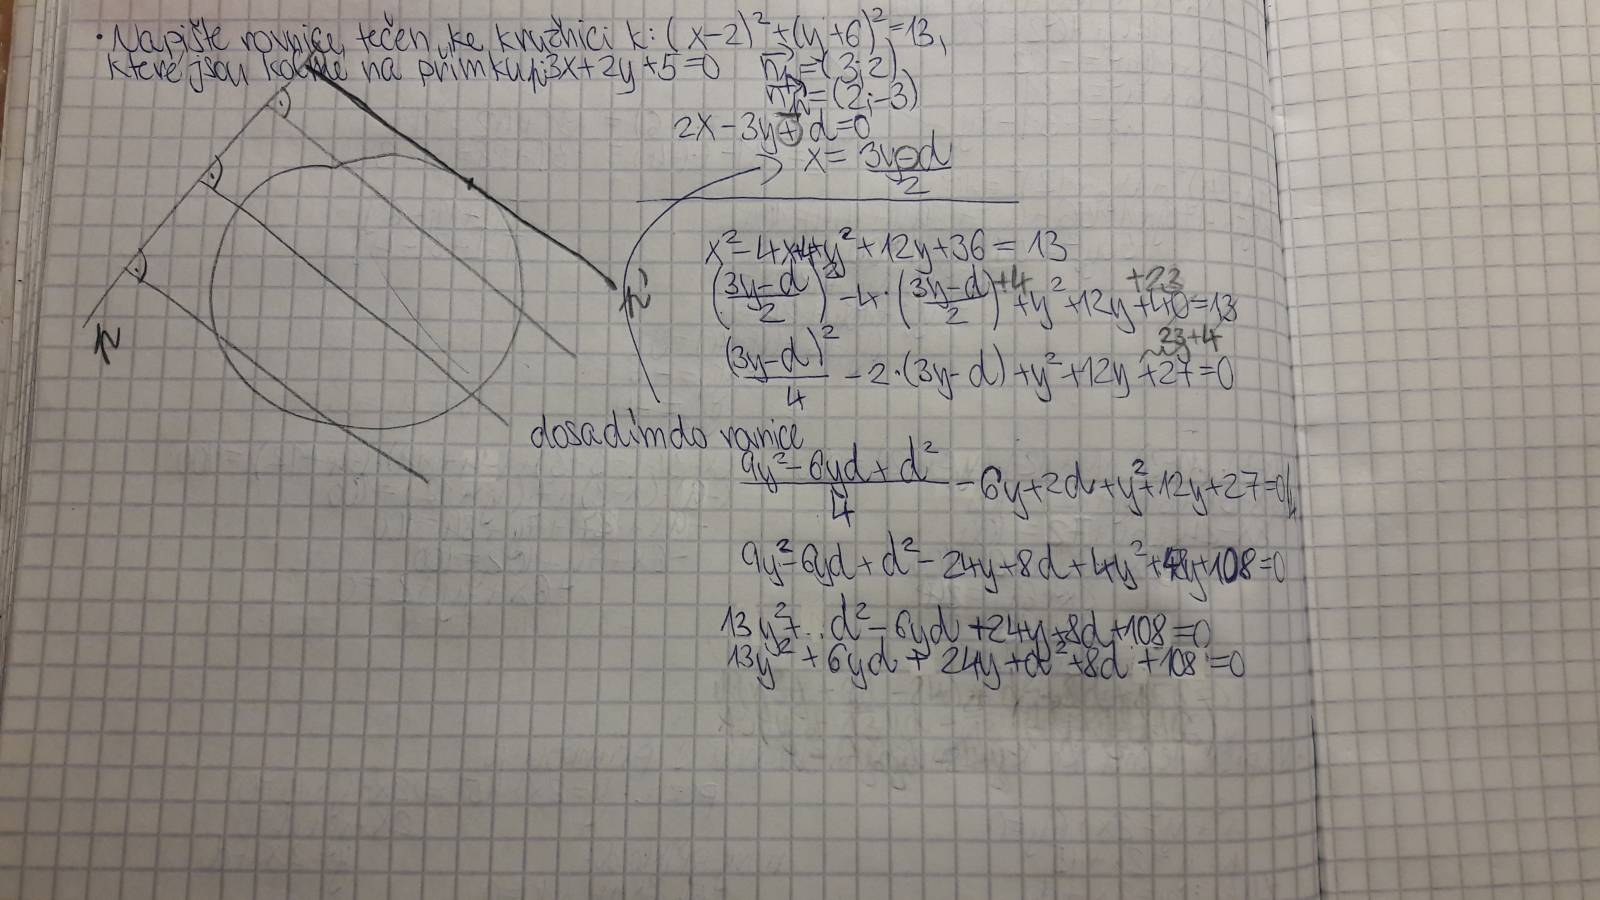 • Napište rovnice tečen ke kružnici k: (x-2)²+(y+6)²=13,
které jsou kolmé na přímku p:3x+2y+5=0
n⃗p=(3;2)
n⃗=(2;-3)
2x-3y+d=0
x= (3y-d)/2
x²-4x+4+y²+12y+36=13
+4 +23
((3y-d)/2)²-4·((3y-d)/2)+y²+12y+40=13
23+4
(3y-d)²/4 -2·(3y-d)+y²+12y+27=0
p
p'
dosadím do rovnice
(9y²-6yd+d²)/4 -6y+2d+y²+12y+27=0
9y²-6yd+d²-24y+8d+4y²+48y+108=0
13y²+..d²-6yd+24y+8d+108=0
13y²+6yd+24y+d²+8d+108=0